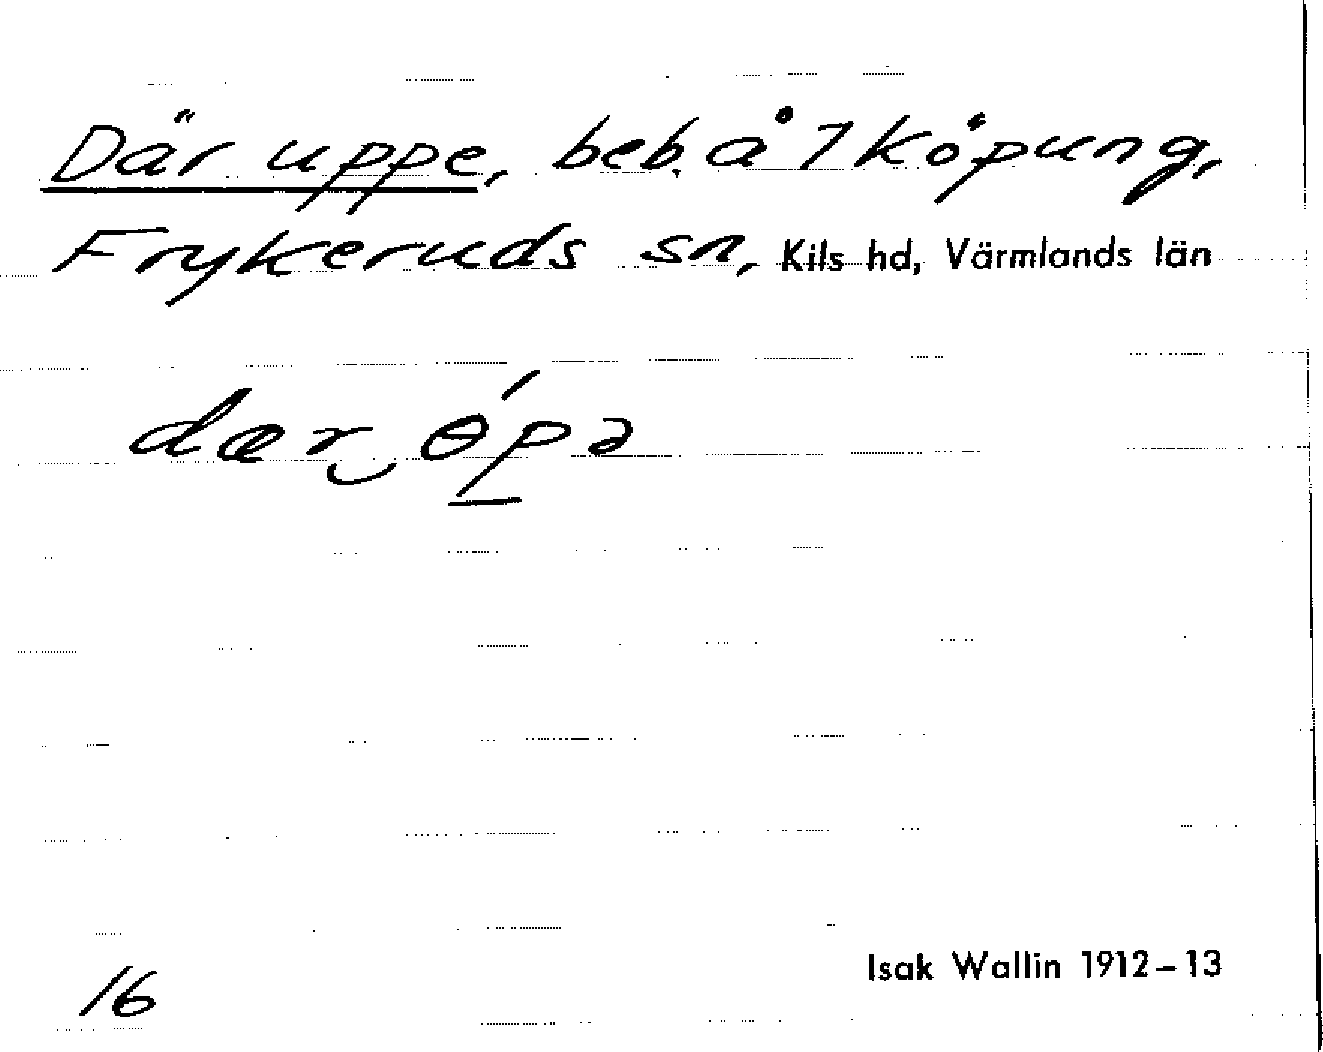 Där uppe, beb. å 7 Köpung,
Frykeruds sn, Kils hd, Värmlands län
dær‿ɵ́pə
Isak Wallin 1912–13
16